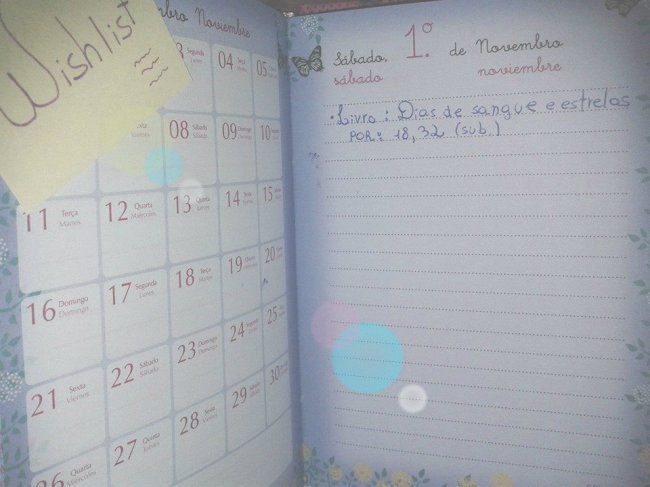 Wishlist
Novembro Noviembre
Segunda
Lunes
04 Terça
Martes
05
08 Sábado
Sábado
09 Domingo
Domingo
10
11 Terça
Martes
12 Quarta
Miércoles
13 Quinta
Jueves
14 Sexta
Viernes
15
16 Domingo
Domingo
17 Segunda
Lunes
18 Terça
Martes
19 Quarta
20
21 Sexta
Viernes
22 Sábado
Sábado
23 Domingo
Domingo
24 Segunda
Lunes
25
26 Quarta
Miércoles
27 Quinta
Jueves
28 Sexta
Viernes
29 Sábado
Sábado
30
Sábado, 1.º de Novembro
sábado noviembre
• Livro: Dias de sangue e estrelas
POR: 18,32 (sub.)